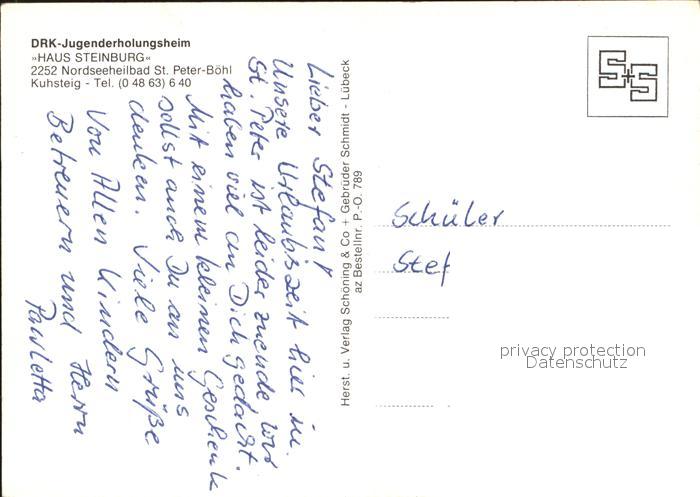 DRK-Jugenderholungsheim
»HAUS STEINBURG«
2252 Nordseeheilbad St. Peter-Böhl
Kuhsteig - Tel. (0 48 63) 6 40
Lieber Stefan!
Unsere Urlaubszeit hier in
St. Peter ist leider zuende wir
haben viel an Dich gedacht.
Mit einem kleinen Geschenk
sollst auch Du an uns
denken. Viele Grüße
Von Allen Kindern
Betreuern und Herrn
Pawletta
Herst. u. Verlag Schöning & Co + Gebrüder Schmidt - Lübeck
az Bestellnr. P.-O. 789
S+S
Schüler
Stef
privacy protection
Datenschutz